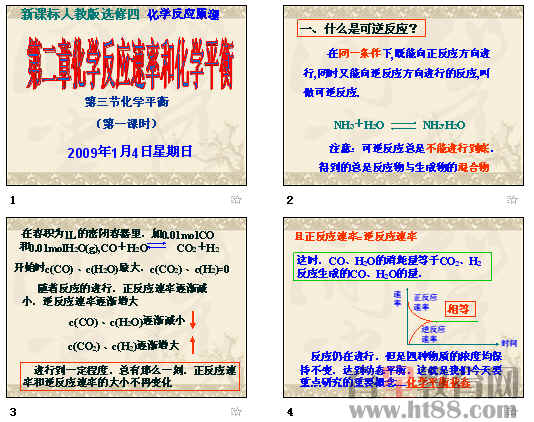 新课标人教版选修四 化学反应原理
第二章化学反应速率和化学平衡
第三节化学平衡
（第一课时）
2009年1月4日星期日
1
一、什么是可逆反应？
在同一条件下,既能向正反应方向进
行,同时又能向逆反应方向进行的反应,叫
做可逆反应.
NH3+H2O NH3·H2O
注意：可逆反应总是不能进行到底．
得到的总是反应物与生成物的混合物
2
在容积为1L的密闭容器里，加0.01molCO
和0.01molH2O(g),CO＋H2O CO2＋H2
开始时c(CO)、c(H2O)最大，c(CO2)、c(H2)=0
随着反应的进行，正反应速率逐渐减
小，逆反应速率逐渐增大
c(CO)、c(H2O)逐渐减小
c(CO2)、c(H2)逐渐增大
进行到一定程度，总有那么一刻，正反应速
率和逆反应速率的大小不再变化
3
且正反应速率=逆反应速率
这时，CO、H2O的消耗量等于CO2、H2
反应生成的CO、H2O的量．
速率
正反应速率
相等
逆反应速率
时间
反应仍在进行，但是四种物质的浓度均保
持不变，达到动态平衡，这就是我们今天要
重点研究的重要概念—化学平衡状态
4
www.ht88.com